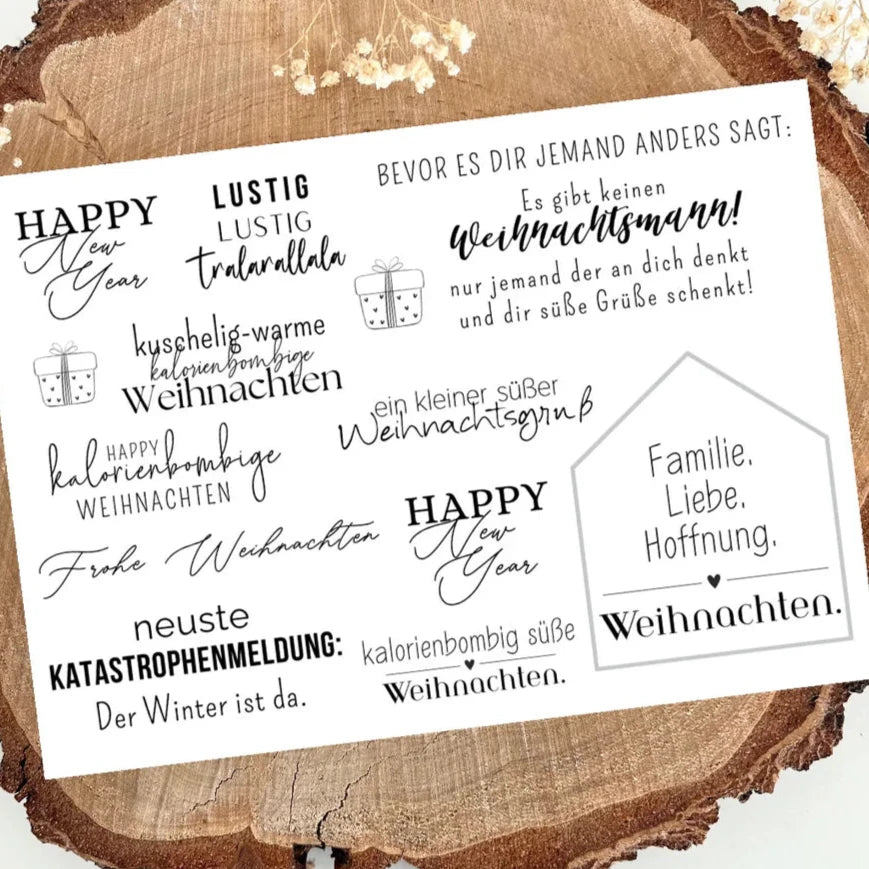 HAPPY
New
Year
LUSTIG
LUSTIG
tralarallala
BEVOR ES DIR JEMAND ANDERS SAGT:
Es gibt keinen
Weihnachtsmann!
nur jemand der an dich denkt
und dir süße Grüße schenkt!
kuschelig-warme
kalorienbombige
Weihnachten
ein kleiner süßer
Weihnachtsgruß
HAPPY
kalorienbombige
WEIHNACHTEN
Frohe Weihnachten
HAPPY
New
Year
Familie.
Liebe.
Hoffnung.
Weihnachten.
neuste
KATASTROPHENMELDUNG:
Der Winter ist da.
kalorienbombig süße
Weihnachten.